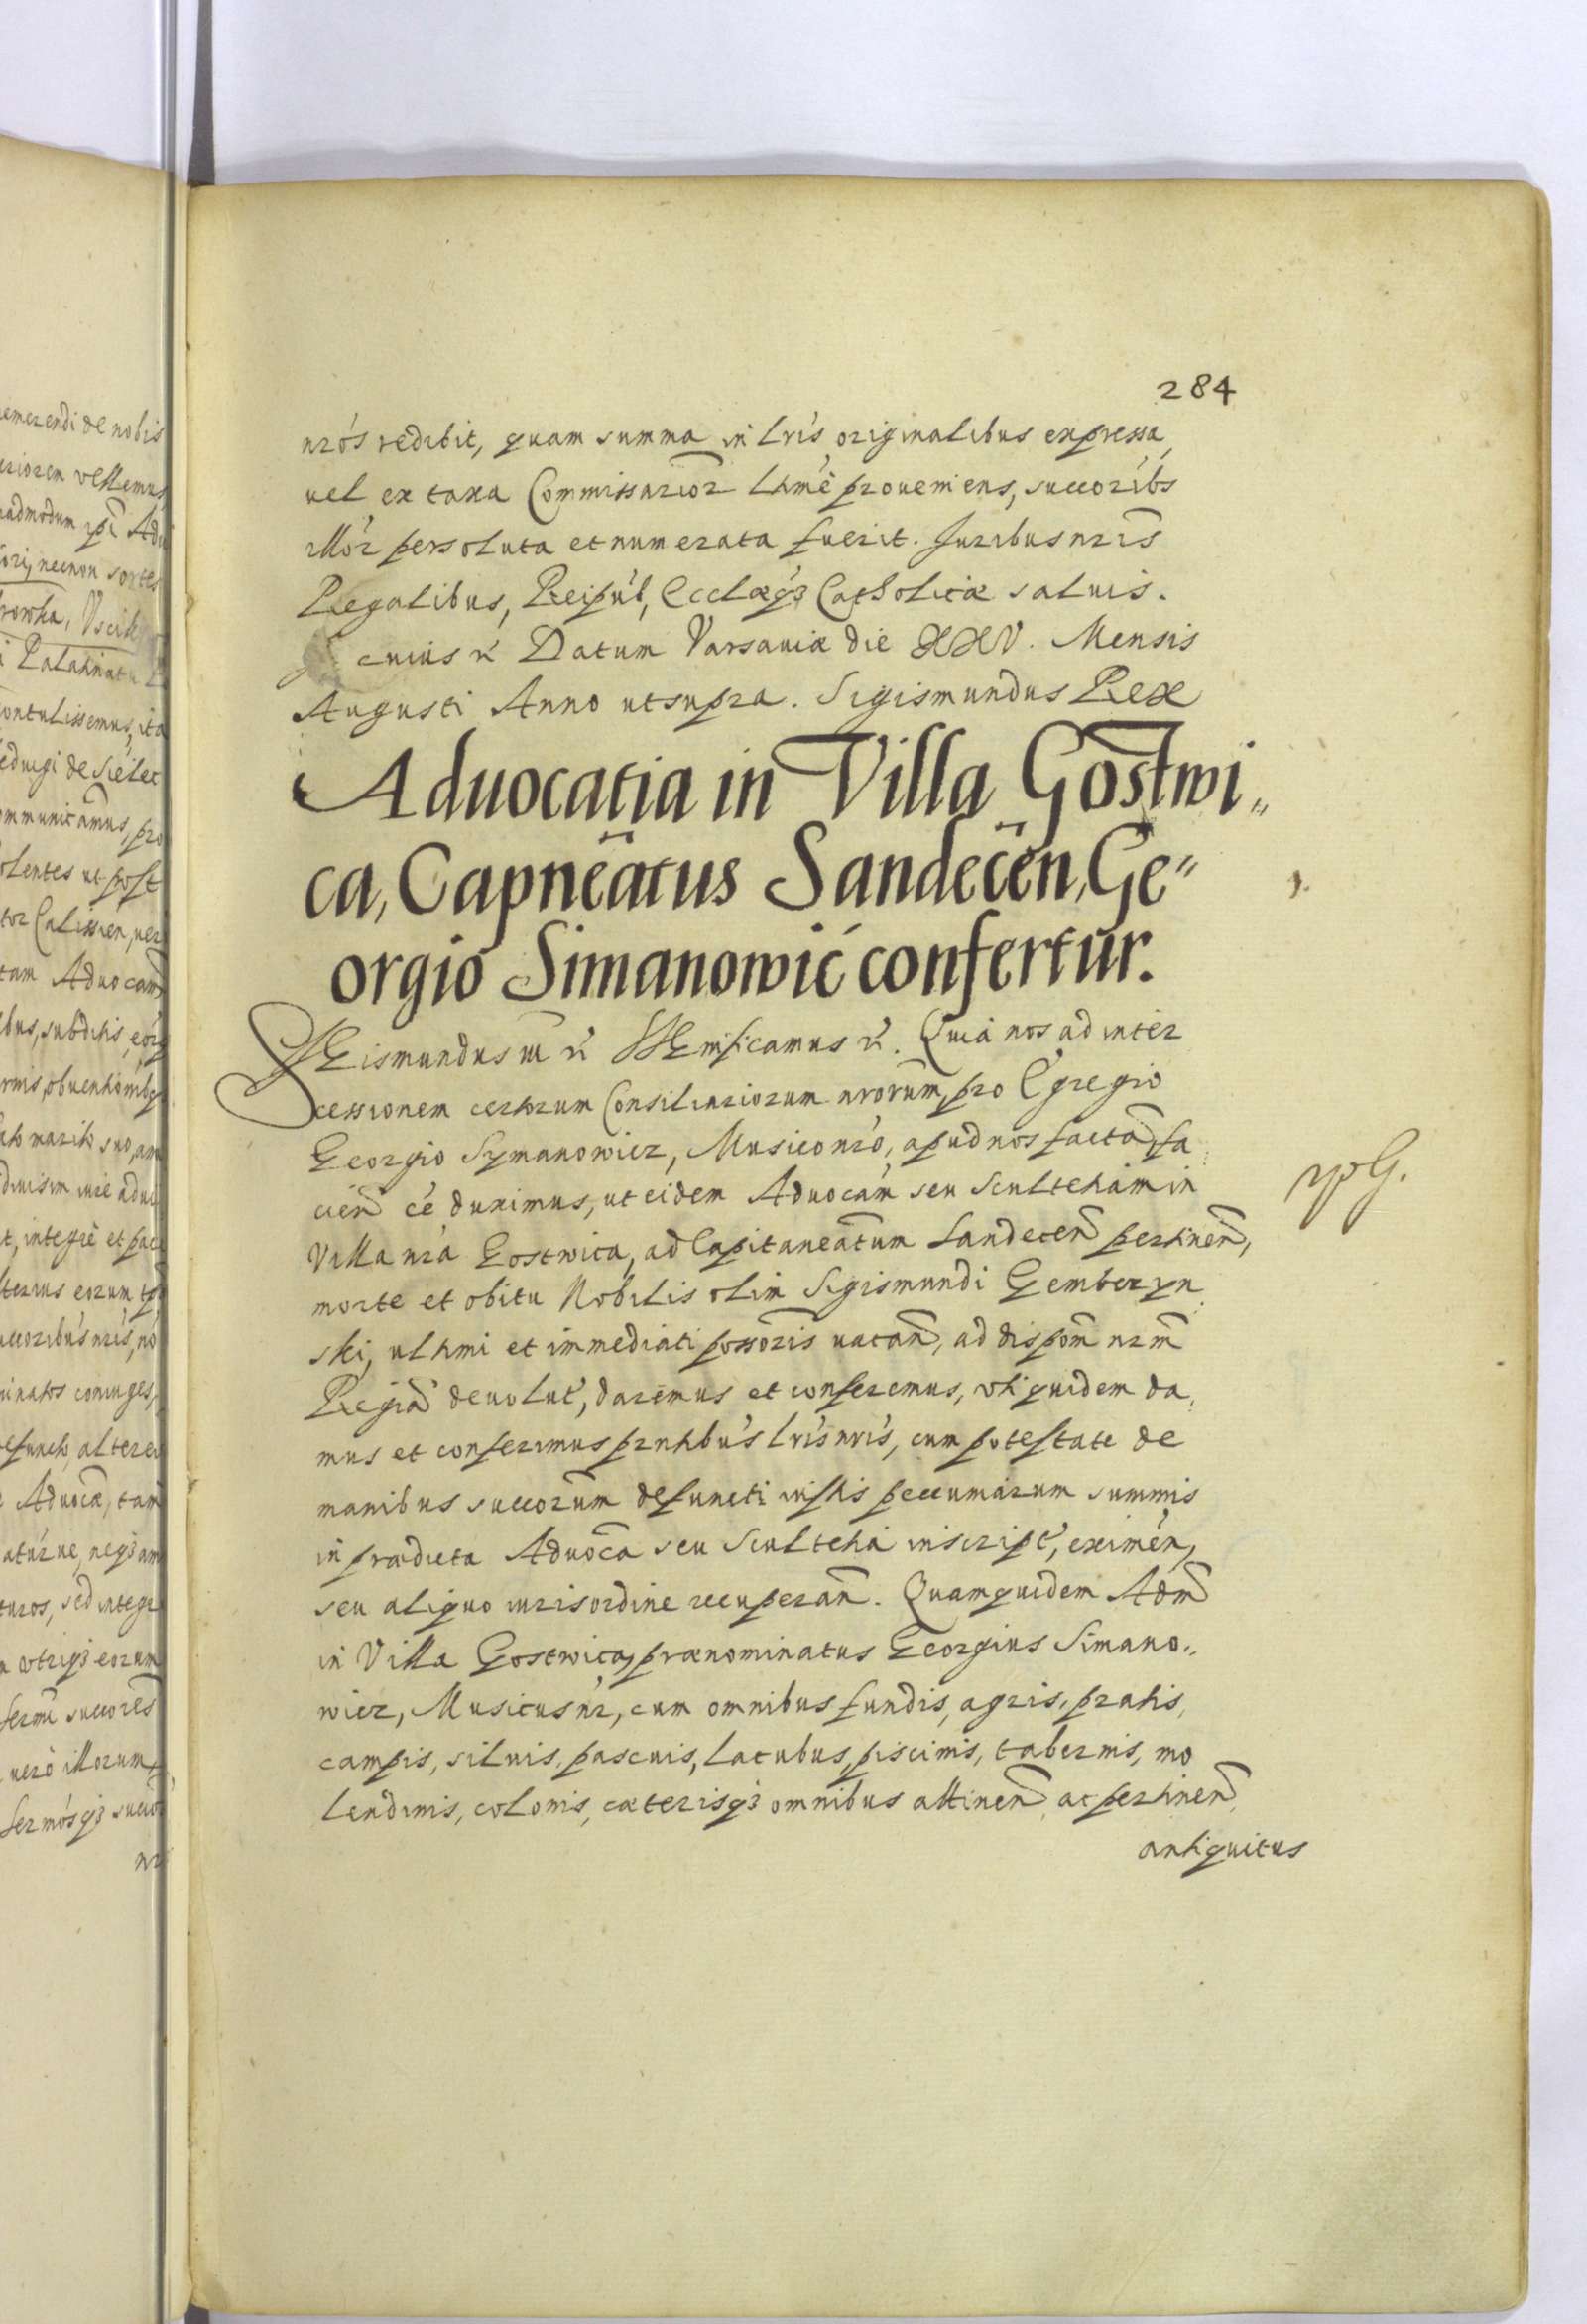 284
nrós redibit, quam summa in lrís originalibus expressa,
uel ex taxa Commissarior̃ lhmé proueniens, succoríbs
illór persoluta et numerata fuerit. Juribus nrĩs
Regalibus, Reipúb, Ecclæq́ꝫ Catholicæ saluis.
cuius rĩ Datum Varsauiæ die XXV. Mensis
Augusti Anno ut supra. Sigismundus Rex
Aduocatia in Villa Gostwi„
ca, Capneãtus Sandecẽn, Ge„
orgio Simanowić confertur.
SIGismundus III rĩ SIGnificamus rĩ. Quia nos ad inter
cessionem certorum Consiliariorum nrorũm, pro Egregio
Georgio Symanowicz, Musico nró, apud nos factã, fa
cieñ cé duximus, ut eidem Aduocám seu Scultetiam in
Villa nrá Gostwica, ad Capitaneãtum Sandeceñ pertineñ,
morte et obitu Nobilis olim Sigismundi Gemberzyn
ski, ultimi et immediati possõris uacañ, ad dispom̃ nrm̃
Regiã deuolut́, daremus et conferemus, vti quidem da„
mus et conferimus prntibús lrís nrís, cum potestate de
manibus succorũm defuncti iustis peccuniarum summis
in prædicta Aduocã seu Scultetia inscript́, eximéń,
seu aliquo iuris ordine recuperañ. Quam quidem Adm̃
in Villa Gostwica, prænominatus Georgius Simano„
wicz, Musicus ńr, cum omnibus fundis, agris, pratis,
campis, siluis, pascuis, lacubus, piscinis, tabernis, mo
lendinis, colonis, cæterisq́ꝫ omnibus attineñ ac pertineñ
antiquitus